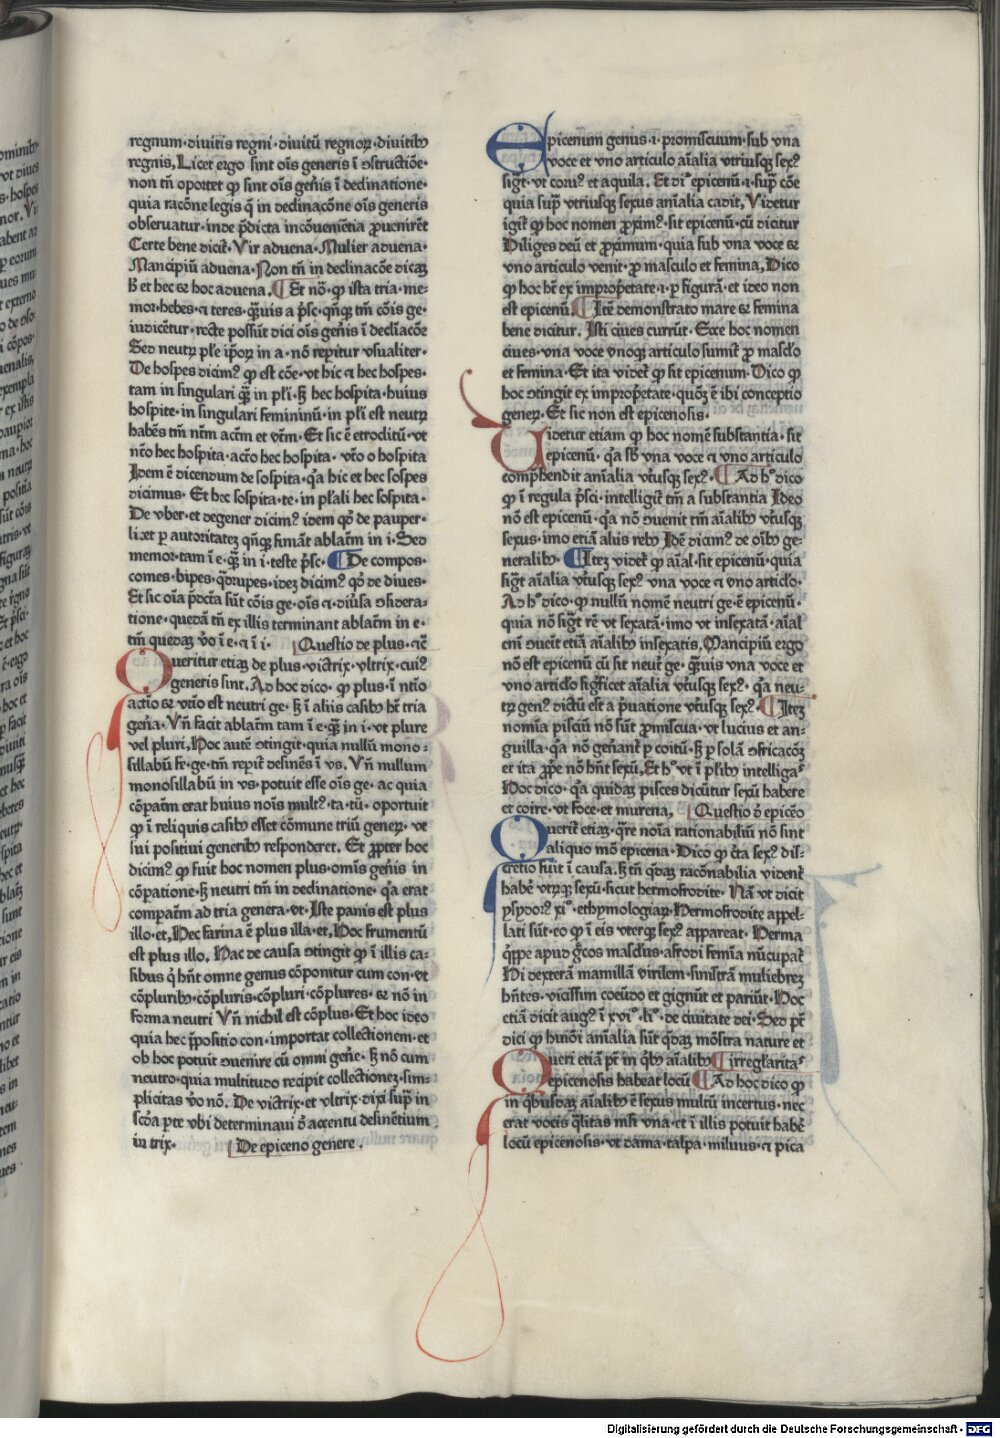 regnum·diuitis regni·diuitū regnoꝝ·diuitibꝰ
regnis, Licet ergo sint oīs generis ī ɔstructiōe·
non tn̄ oportet ꝙ sint oīs geñis ī declinatione·
quia racōne legis q̄ in declinacōne oīs generis
obseruatur·inde p̄dicta incōueniētia ꝓuenirēt
Certe bene dicit̄· Vir aduena· Mulier aduena·
Mancipiū aduena· Non tn̄ in declinacōe dicaꝫ
hꝰ et hec ⁊ hoc aduena. Et nō·ꝙ ista tria·me-
mor·hebes·⁊ teres·q̄ꝫuis a p̄sc·qñqꝫ tm̄ cōis ge·
iudicētur·recte possūt dici oīs geñis ī declīacōe
Sed neutꝝ pl̄e ip̄oꝝ in a·nō reperitur vsualiter·
De hospes dicimꝰ ꝙ est cōe·vt hic ⁊ hec hospes·
tam in singulari q̄ꝫ in pl̄i·sꝫ hec hospita·huius
hospite·in singulari femininū·in pl̄i est neutꝝ
habēs tm̄ nm̄ actm̄ et vtm̄· Et sic ē etroditū·vt
nt̄o hec hospita·actō hec hospita·vtō o hospita
Idem ē dicendum de sospita·qꝛ hic et hec sospes
dicimus· Et hec sospita·te·in pl̄ali hec sospita·
De vber·et degener dicimꝰ idem qḋ de pauper·
licet ꝑ autoritateꝫ qñqꝫ finiāt ablatm̄ in i· Sed
memor·tam ī e·q̄ꝫ in i·teste p̄sc· De compos·
comes·bipes·qdrupes·ideꝫ dicimꝰ qḋ de diues·
Et sic oīa p̄dcta sūt cōis ge·oīs ⁊ diūsa ɔsidera-
tione·quedā tn̄ ex illis terminant ablatm̄ in e·
tm̄ quedaꝫ v̄o ī e·⁊ ī i· Questio de plus·⁊c̄
Queritur etiaꝫ de plus·victrix·vltrix·cuiꝰ
generis sint. Ad hoc dico·ꝙ plus·ī nt̄io
actio ⁊ vtīo est neutri ge·sꝫ ī aliis casibꝰ hꝫ tria
geña· Vn̄ facit ablatm̄ tam ī e·q̄ꝫ in i·vt plure
vel pluri, Hoc autē ɔtingit·quia nullū mono-
sillabū fe·ge·tm̄ reperit̄ desinēs ī vs. Vn̄ nullum
monosillabū in vs·potuit esse oīs ge· ac quia
cōparatm̄ erat huius noīs multꝰ·ta·tū·oportuit
ꝙ ī reliquis casibꝰ esset cōmune triū geneꝝ·vt
sui positiui generibꝰ responderet. Et ꝓpter hoc
dicimꝰ ꝙ fuit hoc nomen plus·omīs geñis in
cōparatione·sꝫ neutri tm̄ in declinatione·qꝛ erat
comparatm̄ ad tria genera·vt· Iste panis est plus
illo·et, Hec farina ē plus illa·et, Hoc frumentū
est plus illo. Hac de causa ɔtingit ꝙ ī illis ca-
sibus q̇ hn̄t omne genus cōponitur cum con·vt
cōpluribꝰ·cōpluris·cōpluri·cōplures·⁊ nō in
forma neutri Vn̄ nichil est cōplus· Et hoc ideo
quia hec p̄positio con·importat collectionem·et
ob hoc potuit ɔuenire cū omni geñe·sꝫ nō cum
neutro·quia multitudo recipit collectioneꝫ·sim-
plicitas v̄o nō. De victrix·et vltrix·dixi sup̄ in
scd̄a ꝑte vbi determinaui ō accentu desinētium
in trix· De epiceno genere.
Epicenum genus·i·promiscuum·sub vna
voce et vno articulo aīalia vtriusqꝫ sexꝰ
sigt̄·vt coruꝰ et aquila. Et dr̄ epicenū·i·sup̄ cōe
quia sup̄ vtriusqꝫ sexus anīalia cadit, Videtur
igit̄ ꝙ hoc nomen ꝓximꝰ·sit epicenū·cū dicitur
Diliges deū et ꝓximum·quia sub vna voce ⁊
vno articulo venit·ꝓ masculo et femina, Dico
ꝙ hoc hꝫ ex impropetate·i·ꝑ figurā·et ideo non
est epicenū. Itē demonstrato mare ⁊ femina
bene dicitur. Isti ciues currūt· Ecce hoc nomen
ciues·vna voce vnoqꝫ articulo sumit̄ ꝓ masclo
et femina· Et ita videt̄ ꝙ sit epicenum· Dico ꝙ
hoc ɔtingit ex impropetate·quoꝫ ē ibi conceptio
geneꝝ· Et sic non est epicenosis·
Videtur etiam ꝙ hoc nomē substantia·sit
epicenū·qꝛ sb̄ vna voce ⁊ vno articulo
comp̄hendit anīalia vtiusqꝫ sexꝰ· Ad hᵒ dico
ꝙ ī regula p̄sci·intelligit̄ tm̄ a substantia Ideo
nō est epicenū·qꝛ nō ɔuenit tm̄ aīalibꝰ vtiusqꝫ
sexus·imo etiā aliis rebꝰ Idē dicimꝰ de oībꝰ ge-
neralibꝰ· Iteꝫ videt̄ ꝙ aīal·sit epicenū·quia
sigt̄ aīalia vtiusqꝫ sexꝰ vna voce ⁊ vno articlo·
Ad hᵒ dico·ꝙ nullū nomē neutri ge·ē epicenū·
quia nō sigt̄ rē vt sexatā·imo vt insexatā·aīal
em̄ ɔuēit etiā aīalibꝰ insexatis, Mancipiū ergo
nō est epicenū cū sit neut̄ ge·q̄ꝫuis vna voce et
vno articlo sigficet aīalia vtiusqꝫ sexꝰ·qꝛ neu-
tꝝ genꝰ dictū est a p̄uatione vtiusqꝫ sexꝰ· Iteꝫ
nomīa pisciū nō sūt ꝓmiscua·vt lucius et an-
guilla·qꝛ nō geñant̄ ꝑ coitū·sꝫ ꝑ solā ɔfricacōꝫ
et ita ꝓp̄e nō hn̄t sexū, Et hᵒ vt ī pl̄ibꝰ intelligaᷤ
Hoc dico·qꝛ quidaꝫ pisces dicūtur sexū habere
et coire·vt foce·et murena, Questio ō epicēo
Querit̄ etiaꝫ·q̄re noīa rationabiliū nō sint
aliquo mō epicena· Dico ꝙ ċta sexꝰ dis-
cretio fuit ī causa. sꝫ tn̄ q̄daꝫ racōnabilia vident̄
habē vtꝝqꝫ sexū·sicut hermofrodite· Nā vt dicit
ysydorꝰ xiᵒ·ethymologiaꝝ· Hermofrodite appel-
lati sūt·eo ꝙ ī eis vterqꝫ sexꝰ appareat· Herma
q̇ppe apud g̊cos masclus·afrodi femīa nūcupat̄
Hi dexterā mamillā virilem·sinistrā muliebreꝫ
hn̄tes·vicissim coeūdo et gignūt et pariūt· Hoc
etiā dicit augꝰ ī xviᵒ·liᵒ·de ciuitate dei· Sed pt̄
dici ꝙ hmōi anīalia sūt q̄daꝫ mōstra nature et
Queri etiā pt̄ in qibꝰ aīalibꝰ irreglaritaᷤ
epicenosis habeat locū Ad hoc dico ꝙ
in qibusdaꝫ aīalibꝰ ē sexus multū incertus·nec
erat vocis q̄litas nisi vna·et ī illis potuit habē
locū epicenosis·vt dama·talpa·miluus·⁊ pica
Digitalisierung gefördert durch die Deutsche Forschungsgemeinschaft - DFG